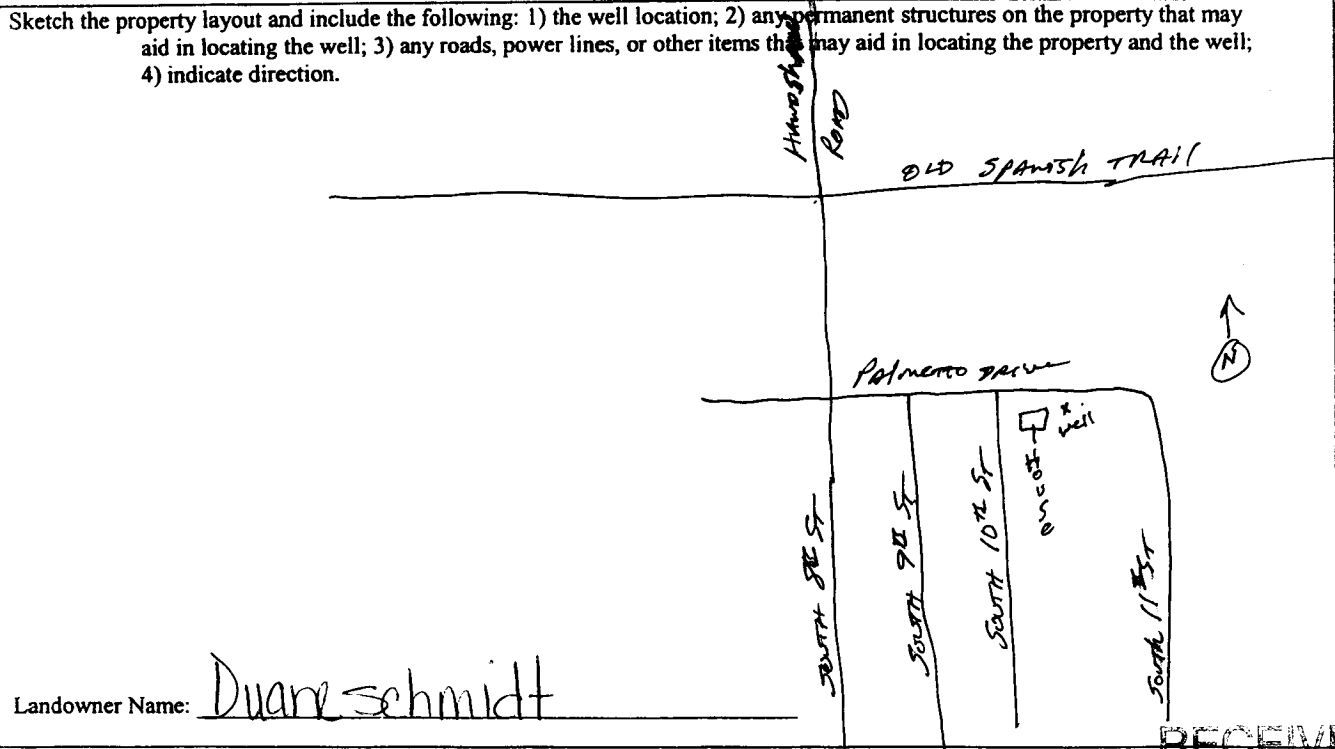 Sketch the property layout and include the following: 1) the well location; 2) any permanent structures on the property that may
aid in locating the well; 3) any roads, power lines, or other items that may aid in locating the property and the well;
4) indicate direction.
ROAD
OLD SPANISH TRAIL
N
PAlmetto DRIVE
x
well
House
SOUTH 8TH ST
SOUTH 9TH ST
SOUTH 10TH ST
South 11TH ST
Landowner Name: Duane Schmidt